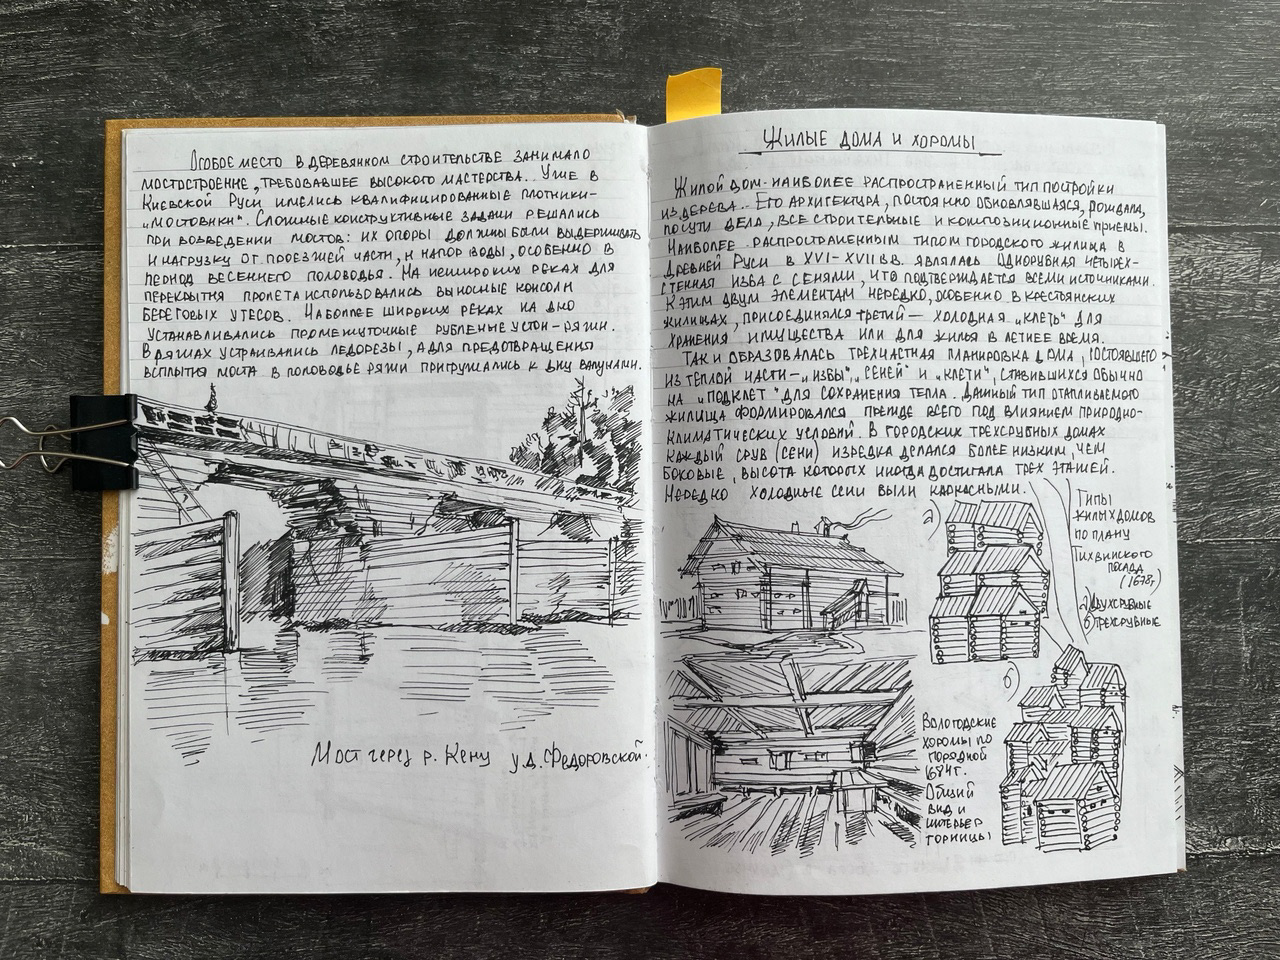 Особое место в деревянном строительстве занимало
мостостроение, требовавшее высокого мастерства. Уже в
Киевской Руси имелись квалифицированные плотники-
„мостовики“. Сложные конструктивные задачи решались
при возведении мостов: их опоры должны были выдерживать
и нагрузку от проезжей части, и напор воды, особенно в
период весеннего половодья. На нешироких реках для
перекрытия пролета использовались выносные консоли
береговых утесов. Наболее широких реках на дно
устанавливались промежуточные рубленые устои-ряжи.
В ряжах устраивались ледорезы, а для предотвращения
всплытия моста в половодье ряжи пригружались к дну валунами.
Мост через р. Кену у д. Федоровской.
Жилые дома и хоромы
Жилой дом - наиболее распространенный тип постройки
из дерева. Его архитектура, постоянно обновлявшаяся, рождала,
по сути дела, все строительные и композиционные приемы.
Наиболее распространенным типом городского жилища в
Древней Руси в XVI-XVII вв. являлась однорубная четырех-
стенная изба с сенями, что подтверждается всеми источниками.
К этим двум элементам нередко, особенно в крестьянских
жилищах, присоединялся третий — холодная „клеть“ для
хранения имущества или для жилья в летнее время.
Так и образовалась трехчастная планировка дома, состоявшего
из теплой части - „избы“, „сеней“ и „клети“, ставившихся обычно
на „подклет“ для сохранения тепла. Данный тип отапливаемого
жилища формировался прежде всего под влиянием природно-
климатических условий. В городских трехсрубных домах
каждый сруб (сени) изредка делался более низким, чем
боковые, высота которых иногда достигала трех этажей.
Нередко холодные сени были каркасными.
а)
Типы
жилых домов
по плану
Тихвинского
посада
(1678г)
а) Двухсрубные
б) Трехсрубные
б)
Вологодские
хоромы по
порядной
1684г.
Общий
вид и
интерьер
горницы